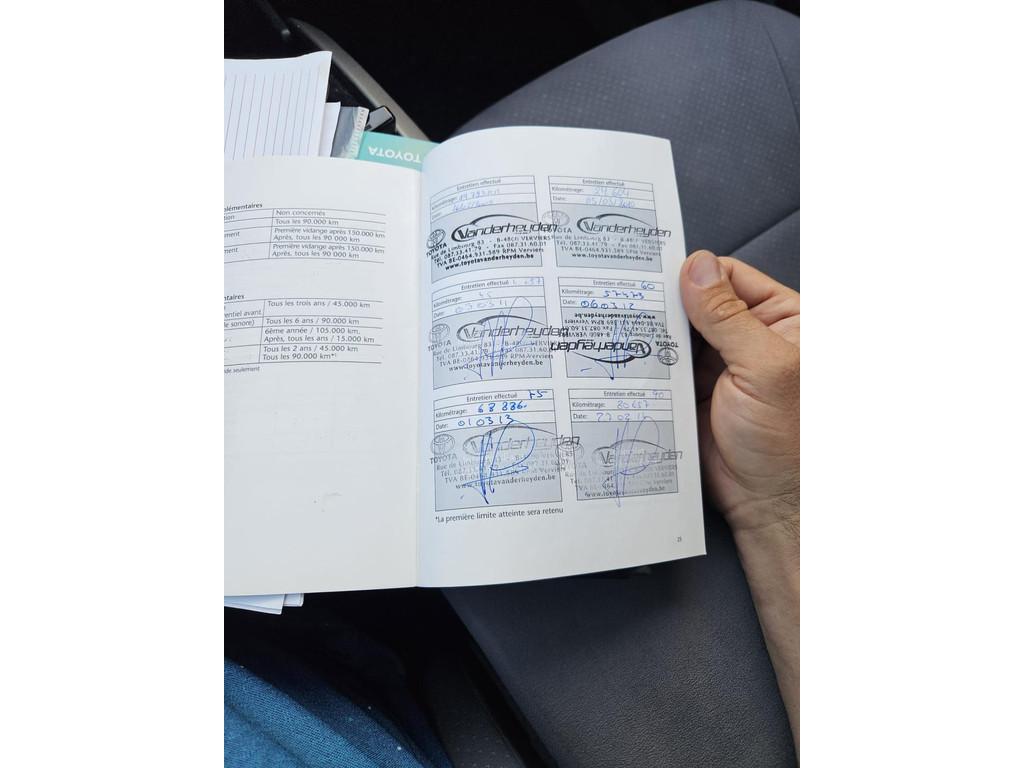 TOYOTA
plémentaires
tion Non concernés
Tous les 90.000 km
ement Première vidange après 150.000 km
Après, tous les 90 000 km
ement Première vidange après 150.000 km
Après, tous les 90 000 km
entaires
Tous les trois ans / 45.000 km
érentiel avant
Tous les 6 ans / 90.000 km
de sonore) 6ème année / 105.000 km,
Après, tous les ans / 15.000 km
Tous les 2 ans / 45.000 km
Tous les 90.000 km*
nde seulement
Entretien effectué
Kilométrage:
Date:
TOYOTA
Vanderheyden
Rue de Limbourg 83 - B-4800 VERVIERS
Tél. 087.33.41.79 - Fax 087.31.60.01
TVA BE-0464.931.589 RPM Verviers
www.toyotavanderheyden.be
Entretien effectué
Kilométrage:
Date: 05/03/2010
TOYOTA
Vanderheyden
Rue de Limbourg 83 - B-4800 VERVIERS
Tél. 087.33.41.79 - Fax 087.31.60.01
TVA BE-0464.931.589 RPM Verviers
www.toyotavanderheyden.be
Entretien effectué
Kilométrage: 45
Date: 070311
TOYOTA
Vanderheyden
Rue de Limbourg 83 - B-4800 VERVIERS
Tél. 087.33.41.79 - Fax 087.31.60.01
TVA BE-0464.931.589 RPM Verviers
www.toyotavanderheyden.be
Entretien effectué 60
Kilométrage: 57473
Date: 060312
www.toyotavanderheyden.be
TVA BE-0464.931.589 RPM Verviers
Tél. 087.33.41.79 - Fax 087.31.60.01
Rue de Limbourg 83 - B-4800 VERVIERS
Vanderheyden
TOYOTA
Entretien effectué 75
Kilométrage: 68886
Date: 010313
TOYOTA
Vanderheyden
Rue de Limbourg 83 - B-4800 VERVIERS
Tél. 087.33.41.79 - Fax 087.31.60.01
TVA BE-0464.931.589 RPM Verviers
www.toyotavanderheyden.be
Entretien effectué 90
Kilométrage: 80657
Date:
TOYOTA
Vanderheyden
Rue de Limbourg 83 - B-4800 VERVIERS
www.toyotavanderheyden.be
*La première limite atteinte sera retenu
25